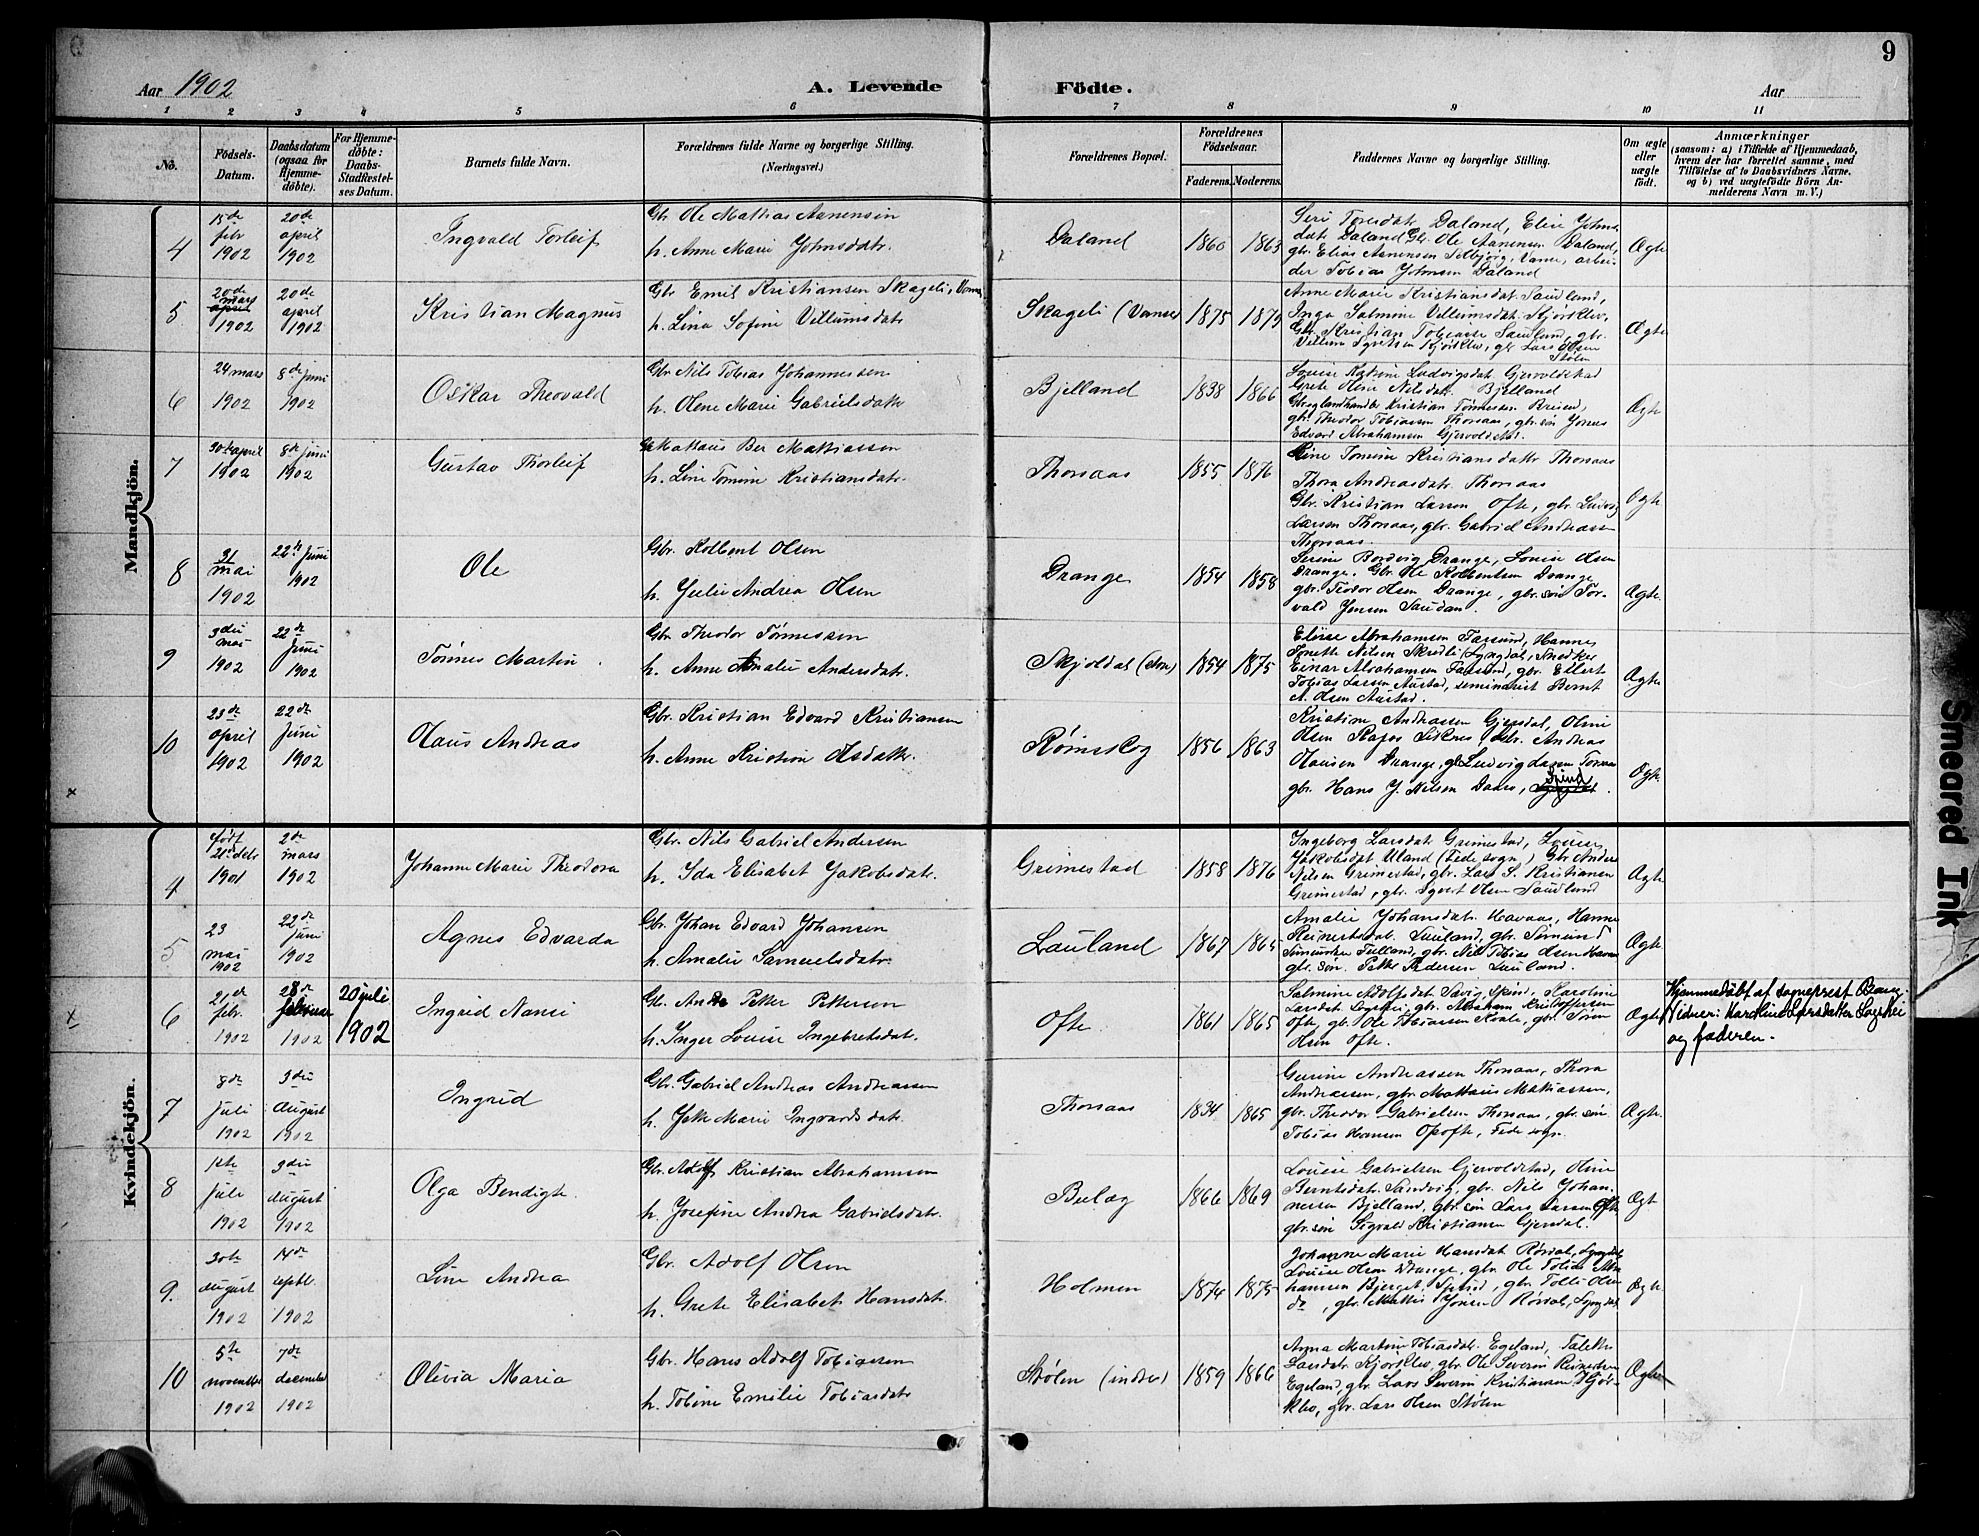 9
Aar 1902
A. Levende
Födte.
Aar
1 2 3 4 5 6 7 8 9 10 11
No.
Födsels-
Datum.
Daabsdatum
(ogsaa for
Hjemme-
döbte).
For Hjemme-
döbte:
Daabs-
Stadfæstel-
ses Datum.
Barnets fulde Navn.
Forældrenes fulde Navne og borgerlige Stilling.
(Næringsvei.)
Forældrenes Bopæl.
Forældrenes
Födselsaar.
Faderens. Moderens.
Faddernes Navne og borgerlige Stilling.
Om ægte
eller
uægte
födt.
Anmærkninger
(saasom: a) i Tilfælde af Hjemmedaab,
hvem der har forrettet samme, med
Tilföielse af to Daabsvidners Navne,
og b) ved uægtefödte Börn An-
melderens Navn m. V.)
Mandkjön.
4
15de
febr
1902
20de
april
1902
Ingvald Torleif
Gbr Ole Mathias Aanensen
h. Anne Marie Johnsdatr.
Daland
1860 1863
Seri Toresdatr Daland, Elise Johns
datr Daland Gbr. Ole Aanensen Daland,
gbr. Elias Aanensen Selbjörg, Vanse, arbei-
der Tobias Johnsen Daland
Ægte
5
20de
mars
april
1902
20de
april
1902
Kristian Magnus
Gbr Emil Kristiansen Skageli, Vanse
h. Lina Sofine Villumsdatr
Skageli (Vanse)
1875 1879
Anne Marie Kristiansdat Saudland,
Inga Salmine Villumsdat. Kjörklev,
Gbr. Kristian Tobiasse Saudland, gbr.
Villum Syvertsen Kjörklev, gbr Lars Olsen
Stølen
Ægte
6
24 mars
1902
8de juni
1902
Oskar Theovald
Gbr Nils Tobias Johannessen
h. Olene Marie Gabrielsdatter
Bjelland
1838 1866
Louise Katrine Ludvigsdat Gjervoldstad
Grete Oline Nilsdatr. Bjelland
Kristian Tørnessen
gbr. Theodor Tobiassen Thorsaas, gbr. søn Jonas
Edvard Abrahamsen Gjervoldstad.
Ægte
7
30de april
1902
8de juni
1902
Gustav Thorleif
Gbr Mathæus Ber Mathiassen
h. Line Tomine Kristiansdatr.
Thorsaas
1855 1876
Line Tomine Kristiansdatr Thorsaas
Thora Andreasdatr. Thorsaas
Gbr. Kristian Larsen Ofte, gbr. Ludvig
Larsen Thorsaas, gbr. Gabriel Andreassen
Thorsaas.
Ægte
8
31
mai
1902
22de juni
1902
Ole
Gbr. Kolbent Olsen
h. Julie Andrea Olsen
Drange
1854 1858
Serine Bordvig Drange, Louise Olsen
Drange. Gbr. Ole Kolbentsen Drange
gbr. Teodor Olsen Drange, gbr. søn Tor-
vald Jensen Saudan
Ægte.
9
3die
mai
1902
22de
Juni
1902
Tönnes Martin
Gbr Theodor Törnessen
h. Anne Amalie Andersdatr.
Skjoldal
1854 1875
Elise Abrahamsen Farsund, Hanne
Jonette Nilsen Skredli (Lyngdal), Snedker
Einar Abrahamsen Farsund, gbr. Ellert
Tobias Larsen Austad, seminarist Bernt
A. Olsen Austad.
Ægte
10
23de
april
1902
22de
Juni
1902
Olaus Andreas
Gbr. Kristian Edvard Kristiansen
h. Anne Kristine Olsdatter.
Römeskog
1856 1863
Kristine Andreassen Gjersdal, Oline
Olsen Kapos Liknes, Gbr. Andreas
Drange, gbr Ludvig Larsen
gbr. Hans J. Nilsen Spind
Ægte
Kvindekjön.
4
født
21de debr
1901
2de
mars
1902
Johanne Marie Theodora
Gbr. Nils Gabriel Andersen
h. Ida Elisabet Jakobsdatr.
Grimestad
1858 1876
Ingeborg Larsdatr Grimestad, Louise
Jakobsdat Uland (Fede sogn) Gbr Anders
Nilsen Grimestad, gbr. Lars S. Kristiansen
Grimestad, gbr. Syvert Olsen Saudland
Ægte
5
23
mai
1902
22de
juni
1902
Agnes Edvarda
Gbr. Johan Edvard Johansen
h. Amalie Samuelsdatr.
Lauland
1867 1865
Amalie Johansdatr. Havaas, Hanne
Reinertsdatr. Lauland, gbr. Simund
gbr. Nils Tobias Olsen Havaas
gbr. søn. Petter Pedersen Lauland.
Ægte
6
21de
febr.
1902
28de
februar
1902
20 juli
1902
Ingrid Nansi
Gbr. Andr Petter Pettersen
h. Inger Louise Ingebretsdatr.
Ofte
1861 1865
Salmine Adolfsdat Sævig, Spind, Karoline
Larsdat. Logskei, gbr. Abraham Kristoffersen
Ofte, gbr. Ole Tobiassen Kvale, gbr. Sören
Olsen Ofte.
Ægte
Hjemmedøbt af sogneprest Bang.
Vidner: Karoline Larsdatter Logskei
og faderen.
7
8de
juli
1902
3die
august
1902
Ingrid
Gbr. Gabriel Andreas Andreassen
h. Jette Marie Ingvardsdatr.
Thorsaas
1834 1865
Gusine Andreassen Thorsaas, Thora
Andreassen, gbr. Mathæus Mathiassen,
gbr. Theodor Gabrielsen Thorsaas, gbr. søn
Tobias Hansen Opofte, Fede sogn.
Ægte.
8
1ste
juli
1902
3die
august
1902
Olga Bendigte.
Gbr. Adolf Kristian Abrahamsen
h. Josefine Andrea Gabrielsdatr.
Bulæg
1866 1869
Louise Gabrielsen Gjervoldstad, Oline
Berntsdatr. Sandvig, gbr. Nils Johan-
nessen Bjelland, gbr. søn Lars Larsen Ofte,
gbr. søn Sigvald Kristiansen Gjersdal.
Ægte
9.
30te
august
1902
14de
septbr.
1902
Line Andrea
Gbr. Adolf Olsen
h. Grete Elisabet Hansdatr.
Holmen
1874 1875
Johanne Marie Hansdat Rørdal, Lyngdal,
Louise Olsen Drange, gbr. Ole Tobias
hansen Bjerget, Spind, gbr. Tollis Olsen
do, gbr. Mathis Jonsen Rørdal, Lyngdal
Ægte.
10
5te
november
1902
7de
december
1902
Olivia Maria
Gbr. Hans Adolf Tobiassen
h. Tobine Emilie Tobiasdatr
Stølen (indre)
1859 1866
Anna Martine Tobiasdatr. Egeland, Taletta
Larsdatr. Kjörklev, gbr. Ole Severin Reinertsen
Egeland, gbr. Lars Severin Kristiansen Kjör-
klev, gbr. Lars Olsen Stølen
Ægte
Smeared Ink